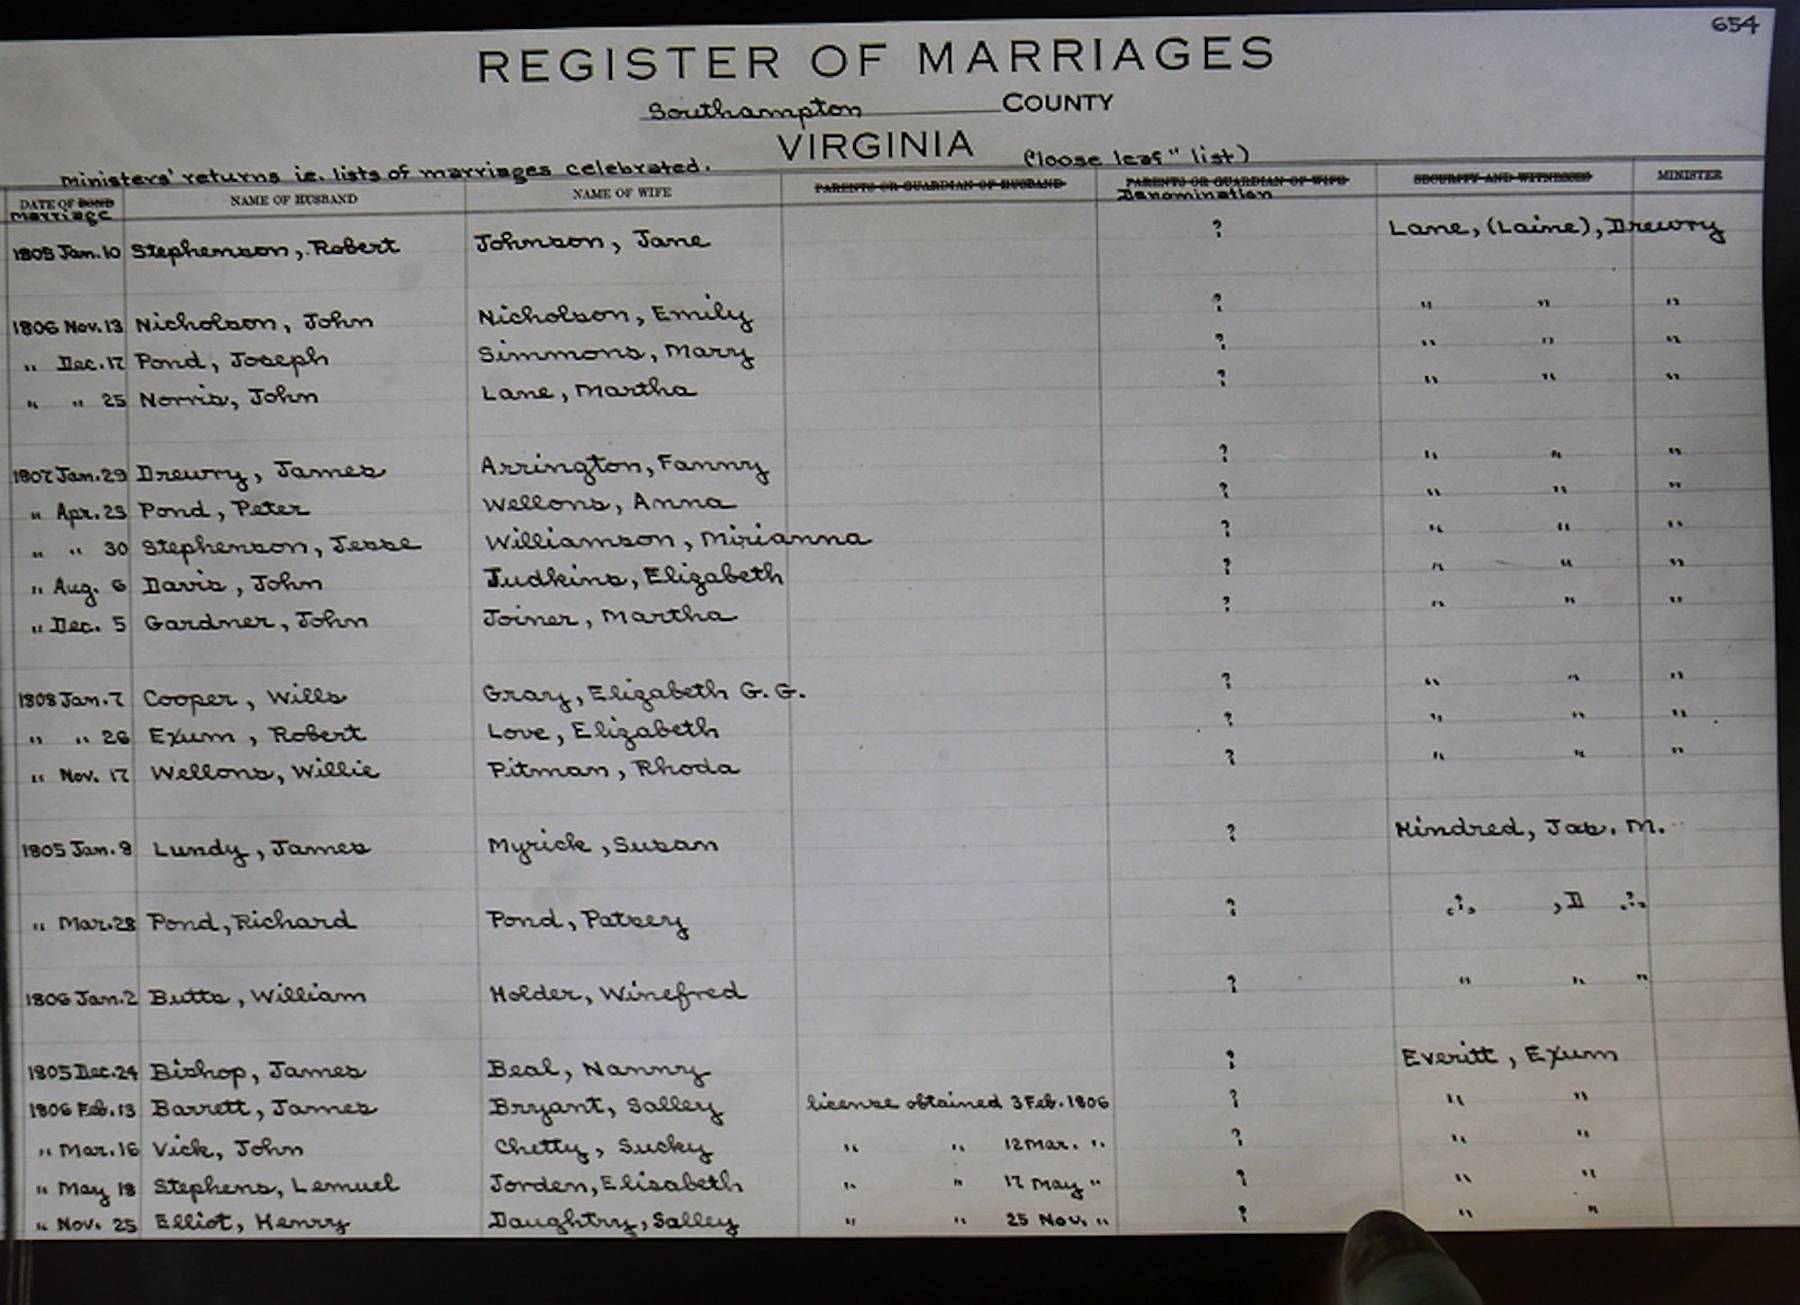 654
REGISTER OF MARRIAGES
Southampton COUNTY
VIRGINIA ("loose leaf" list)
Ministers' returns i.e. lists of marriages celebrated.
DATE OF BOND Marriage NAME OF HUSBAND NAME OF WIFE PARENTS OR GUARDIAN OF HUSBAND PARENTS OR GUARDIAN OF WIFE Denomination SECURITY AND WITNESSES MINISTER
1805 Jan. 10 Stephenson, Robert Johnson, Jane ? Lane, (Laine), Drewry
1806 Nov. 13 Nicholson, John Nicholson, Emily ? " " "
" Dec. 17 Pond, Joseph Simmons, Mary ? " " "
" " 25 Norris, John Lane, Martha ? " " "
1807 Jan. 29 Drewry, James Arrington, Fanny ? " " "
" Apr. 23 Pond, Peter Wellons, Anna ? " " "
" " 30 Stephenson, Jesse Williamson, Mirianna ? " " "
" Aug. 6 Davis, John Judkins, Elizabeth ? " " "
" Dec. 5 Gardner, John Joiner, Martha ? " " "
1808 Jan. 7 Cooper, Wills Gray, Elizabeth G. G. ? " " "
" " 26 Exum, Robert Love, Elizabeth ? " " "
" Nov. 17 Wellons, Willie Pitman, Rhoda ? " " "
1805 Jan. 9 Lundy, James Myrick, Susan ? Kindred, Jas. M.
" Mar. 28 Pond, Richard Pond, Patsey ? "?" , D "?"
1806 Jan. 2 Butts, William Holder, Winefred ? " " "
1805 Dec. 24 Bishop, James Beal, Nanny ? Everitt, Exum
1806 Feb. 13 Barrett, James Bryant, Salley license obtained 3 Feb. 1806 ? " "
" Mar. 16 Vick, John Chetty, Sucky " " 12 Mar. " ? " "
" May 18 Stephens, Lemuel Jorden, Elisabeth " " 17 May " ? " "
" Nov. 25 Elliot, Henry Daughtry, Salley " " 25 Nov. " ? " "